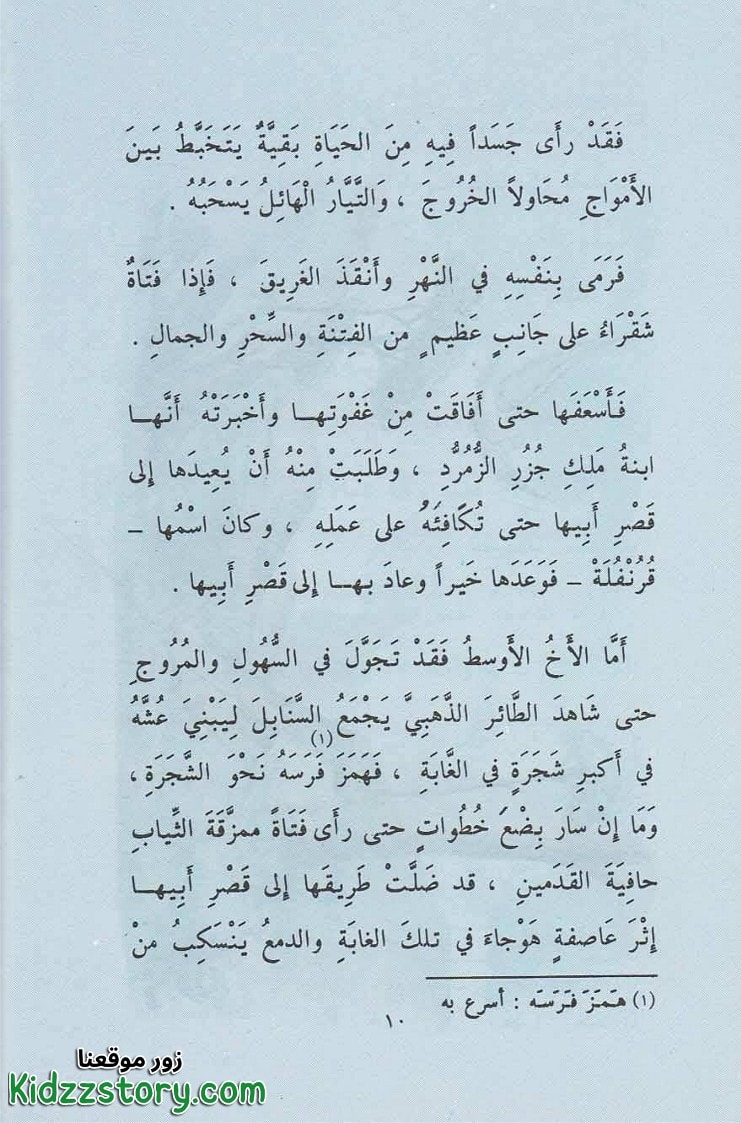 فَقَدْ رأَى جَسَداً فِيهِ مِنَ الحَيَاةِ بَقِيَّةٌ يَتَخَبَّطُ بَينَ
الأَمْوَاجِ مُحَاولاً الخُرُوجَ ، وَالتَّيَّارُ الْهَائِلُ يَسْحَبُهُ .
فَرَمَى بِنَفْسِهِ في النَّهْرِ وأَنْقَذَ الغَرِيقَ ، فَإِذا فَتَاةٌ
شَقْرَاءُ على جَانِبٍ عَظيمٍ من الفِتْنَةِ والسِّحْرِ والجمالِ .
فَأَسْعَفَها حتى أَفَاقَتْ مِنْ غَفْوَتِهـا وأَخْبَرَتْهُ أَنَّهـا
ابنةُ مَلِكِ جُزُرِ الزُّمُرُّدِ ، وَطَلَبَتْ مِنْهُ أَنْ يُعِيدَها إلى
قَصْرِ أَبِيها حتى تُكَافِئَهُ على عَمَلِهِ ، وكانَ اسْمُها –
قُرُنْفُلَةْ – فَوَعَدَها خَيراً وعادَ بهـا إلى قَصْرِ أَبِيها .
أَمَّا الأَخُ الأَوسطُ فَقَدْ تَجَوَّلَ في السُّهُولِ والمُرُوجِ
حتى شَاهدَ الطَّائِرَ الذَّهَبِيَّ يَجْمَعُ السَّنَابِلَ لِيَبْنِيَ عُشَّهُ
في أَكبرِ شَجَرَةٍ في الغَّابَةِ ، فَهَمَزَ (١) فَرَسَهُ نَحْوَ الشَّجَرَةِ ،
وَمَا إنْ سَارَ بِضْعَ خُطُواتٍ حتى رأَى فَتَاةً ممزَّقَةَ الثِّيابِ
حافِيَةَ القَدَمينِ ، قد ضَلَّتْ طَرِيقَها إلى قَصْرِ أَبِيهـا
إِثْرَ عَاصفةٍ هَوْجاءَ في تلكَ الغابَةِ والدمعُ يَنْسَكِبُ منْ
(١) هَمَزَ فَرَسَه : أسرع به
١٠
زور موقعنا
Kidzzstory.com